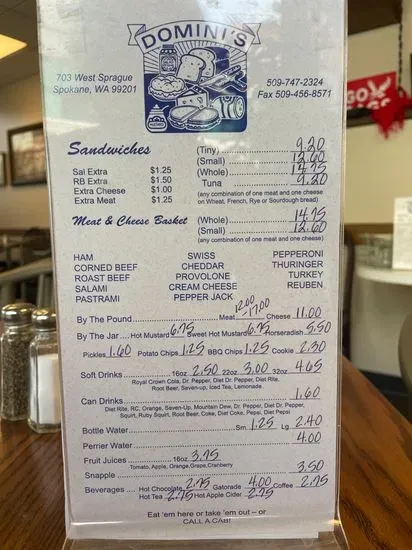 DOMINI'S
703 West Sprague
Spokane, WA 99201
509-747-2324
Fax 509-456-8571
GO
Sandwiches
(Tiny) 9.20
(Small) 12.60
(Whole) 14.75
Tuna 9.20
Sal Extra $1.25
RB Extra $1.50
Extra Cheese $1.00
Extra Meat $1.25
(any combination of one meat and one cheese
on Wheat, French, Rye or Sourdough bread)
Meat & Cheese Basket (Whole) 14.75
(Small) 12.60
(any combination of one meat and one cheese)
HAM SWISS PEPPERONI
CORNED BEEF CHEDDAR THURINGER
ROAST BEEF PROVOLONE TURKEY
SALAMI CREAM CHEESE REUBEN
PASTRAMI PEPPER JACK
By The Pound Meat 12.00-17.00 Cheese 11.00
By The Jar Hot Mustard 6.75 Sweet Hot Mustard 6.75 Horseradish 5.50
Pickles 1.60 Potato Chips 1.25 BBQ Chips 1.25 Cookie 2.30
Soft Drinks 16oz 2.50 22oz 3.00 32oz 4.65
Royal Crown Cola, Dr. Pepper, Diet Dr. Pepper, Diet Rite,
Root Beer, Seven-up, Iced Tea, Lemonade
Can Drinks 1.60
Diet Rite, RC, Orange, Seven-Up, Mountain Dew, Dr. Pepper, Diet Dr. Pepper,
Squirt, Ruby Squirt, Root Beer, Coke, Diet Coke, Pepsi, Diet Pepsi
Bottle Water Sm. 1.25 Lg 2.40
Perrier Water 4.00
Fruit Juices 16oz 3.75
Tomato, Apple, Orange, Grape, Cranberry
Snapple 3.50
Beverages Hot Chocolate 2.75 Gatorade 4.00 Coffee 2.75
Hot Tea 2.75 Hot Apple Cider 2.75
Eat 'em here or take 'em out – or
CALL A CAB!